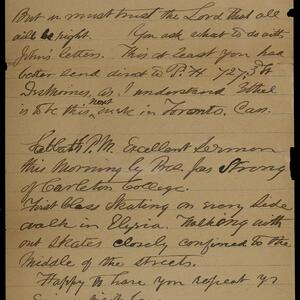 But we must trust the Lord that all
will be right. You ask what to do with
John's letter. This at least you had
better send direct to P.H. 727 3rd St
Des Moines, as I understand Ethel
is to be this next week in Toronto, Can.
Sabbath P.M. Excellent Sermon
this Morning by Pres. Jas Strong
of Carleton College.
First Class Skating on every side
walk in Elyria. Walking with
out skates closely confined to the
Middle of the streets.
Happy to have you repeat yr